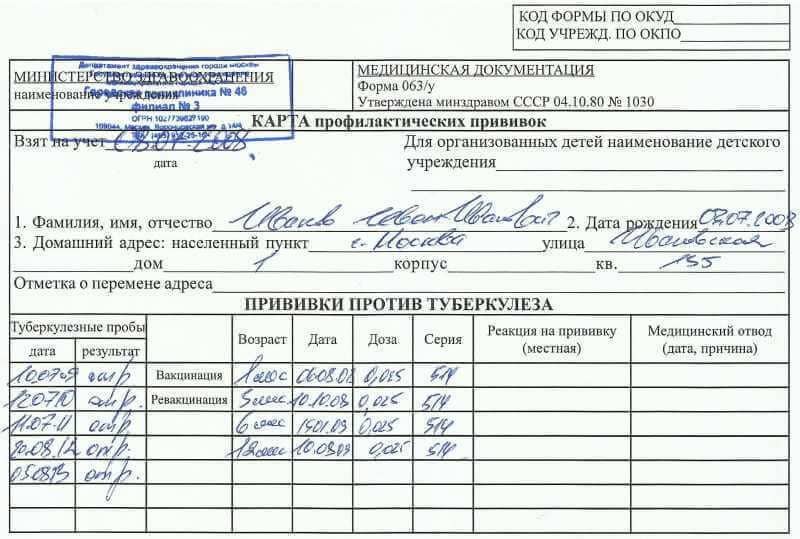 КОД ФОРМЫ ПО ОКУД
КОД УЧРЕЖД. ПО ОКПО
Департамент здравоохранения города Москвы
Городская поликлиника № 46
филиал № 3
ОГРН 1027739827190
МИНИСТЕРСТВО ЗДРАВООХРАНЕНИЯ
наименование учреждения
МЕДИЦИНСКАЯ ДОКУМЕНТАЦИЯ
Форма 063/у
Утверждена минздравом СССР 04.10.80 № 1030
КАРТА профилактических прививок
Взят на учет
дата
Для организованных детей наименование детского
учреждения
1. Фамилия, имя, отчество Иванов Иван Иванович 2. Дата рождения 03.07.2008
3. Домашний адрес: населенный пункт г. Москва улица Ивановская
дом 1 корпус кв. 155
Отметка о перемене адреса
ПРИВИВКИ ПРОТИВ ТУБЕРКУЛЕЗА
Туберкулезные пробы Возраст Дата Доза Серия Реакция на прививку (местная) Медицинский отвод (дата, причина)
дата результат
10.07.09 отр. Вакцинация 1 мес 06.08.08 0,025 514
12.07.10 отр. Ревакцинация 10.10.08 0,025 514
11.07.11 отр. 6 мес 0,025 514
20.08.12 отр. 0,025 514
05.08.13 отр.